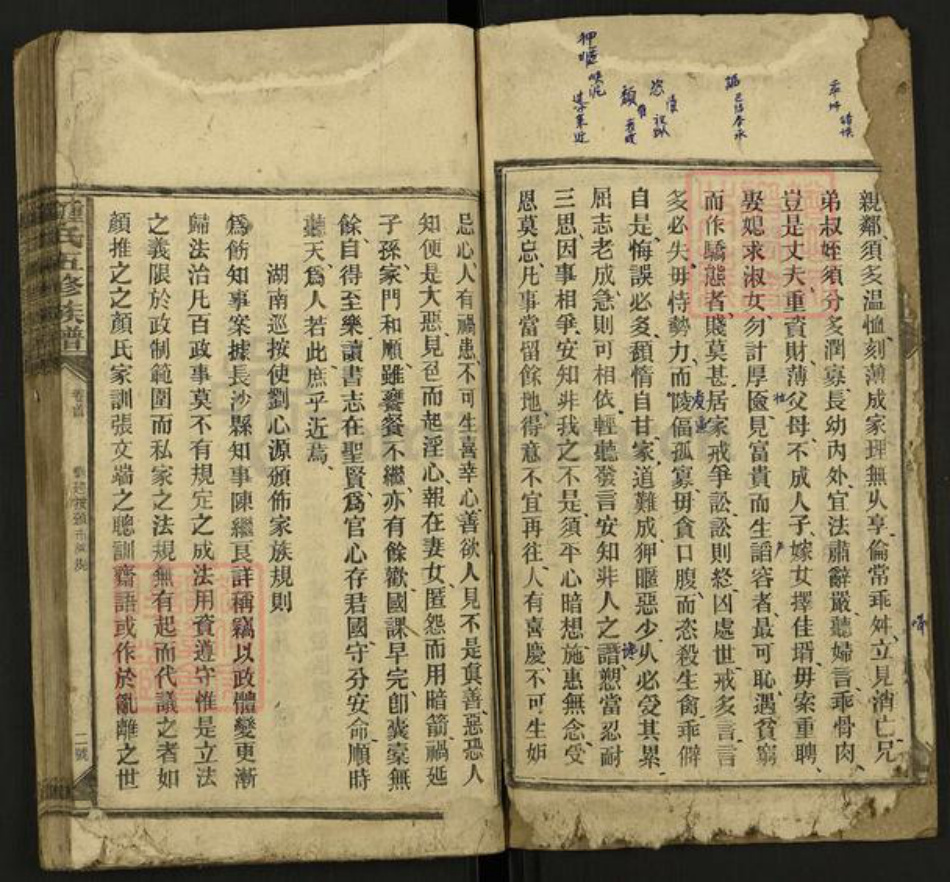 親鄰須多温恤刻薄成家理無久享倫常乖舛立見消亡兄
弟叔姪須分多潤寡長幼內外宜法肅辭嚴聽婦言乖骨肉
豈是丈夫重資財薄父母不成人子嫁女擇佳壻毋索重聘
娶媳求淑女勿計厚奩見富貴而生諂容者最可恥遇貧窮
而作驕態者賤莫甚居家戒爭訟訟則終凶處世戒多言言
多必失毋恃勢力而陵偪孤寡毋貪口腹而恣殺生禽乖僻
自是悔誤必多頹惰自甘家道難成狎暱惡少久必受其累
屈志老成急則可相依輕聽發言安知非人之譖愬當忍耐
三思因事相爭安知非我之不是須平心暗想施惠無念受
恩莫忘凡事當留餘地得意不宜再往人有喜慶不可生妒
忌心人有禍患不可生喜幸心善欲人見不是眞善惡恐人
知便是大惡見色而起淫心報在妻女匿怨而用暗箭禍延
子孫家門和順雖饔餐不繼亦有餘歡國課早完卽囊橐無
餘自得至樂讀書志在聖賢爲官心存君國守分安命順時
聽天爲人若此庶乎近焉
湖南巡按使劉心源頒佈家族規則
爲飭知事案據長沙縣知事陳繼良詳稱竊以政體變更漸
歸法治凡百政事莫不有規定之成法用資遵守惟是立法
之義限於政制範圍而私家之法規無有起而代議之者如
顏推之之顏氏家訓張文端之聰訓齋語或作於亂離之世
氏五修族譜
卷首
二號